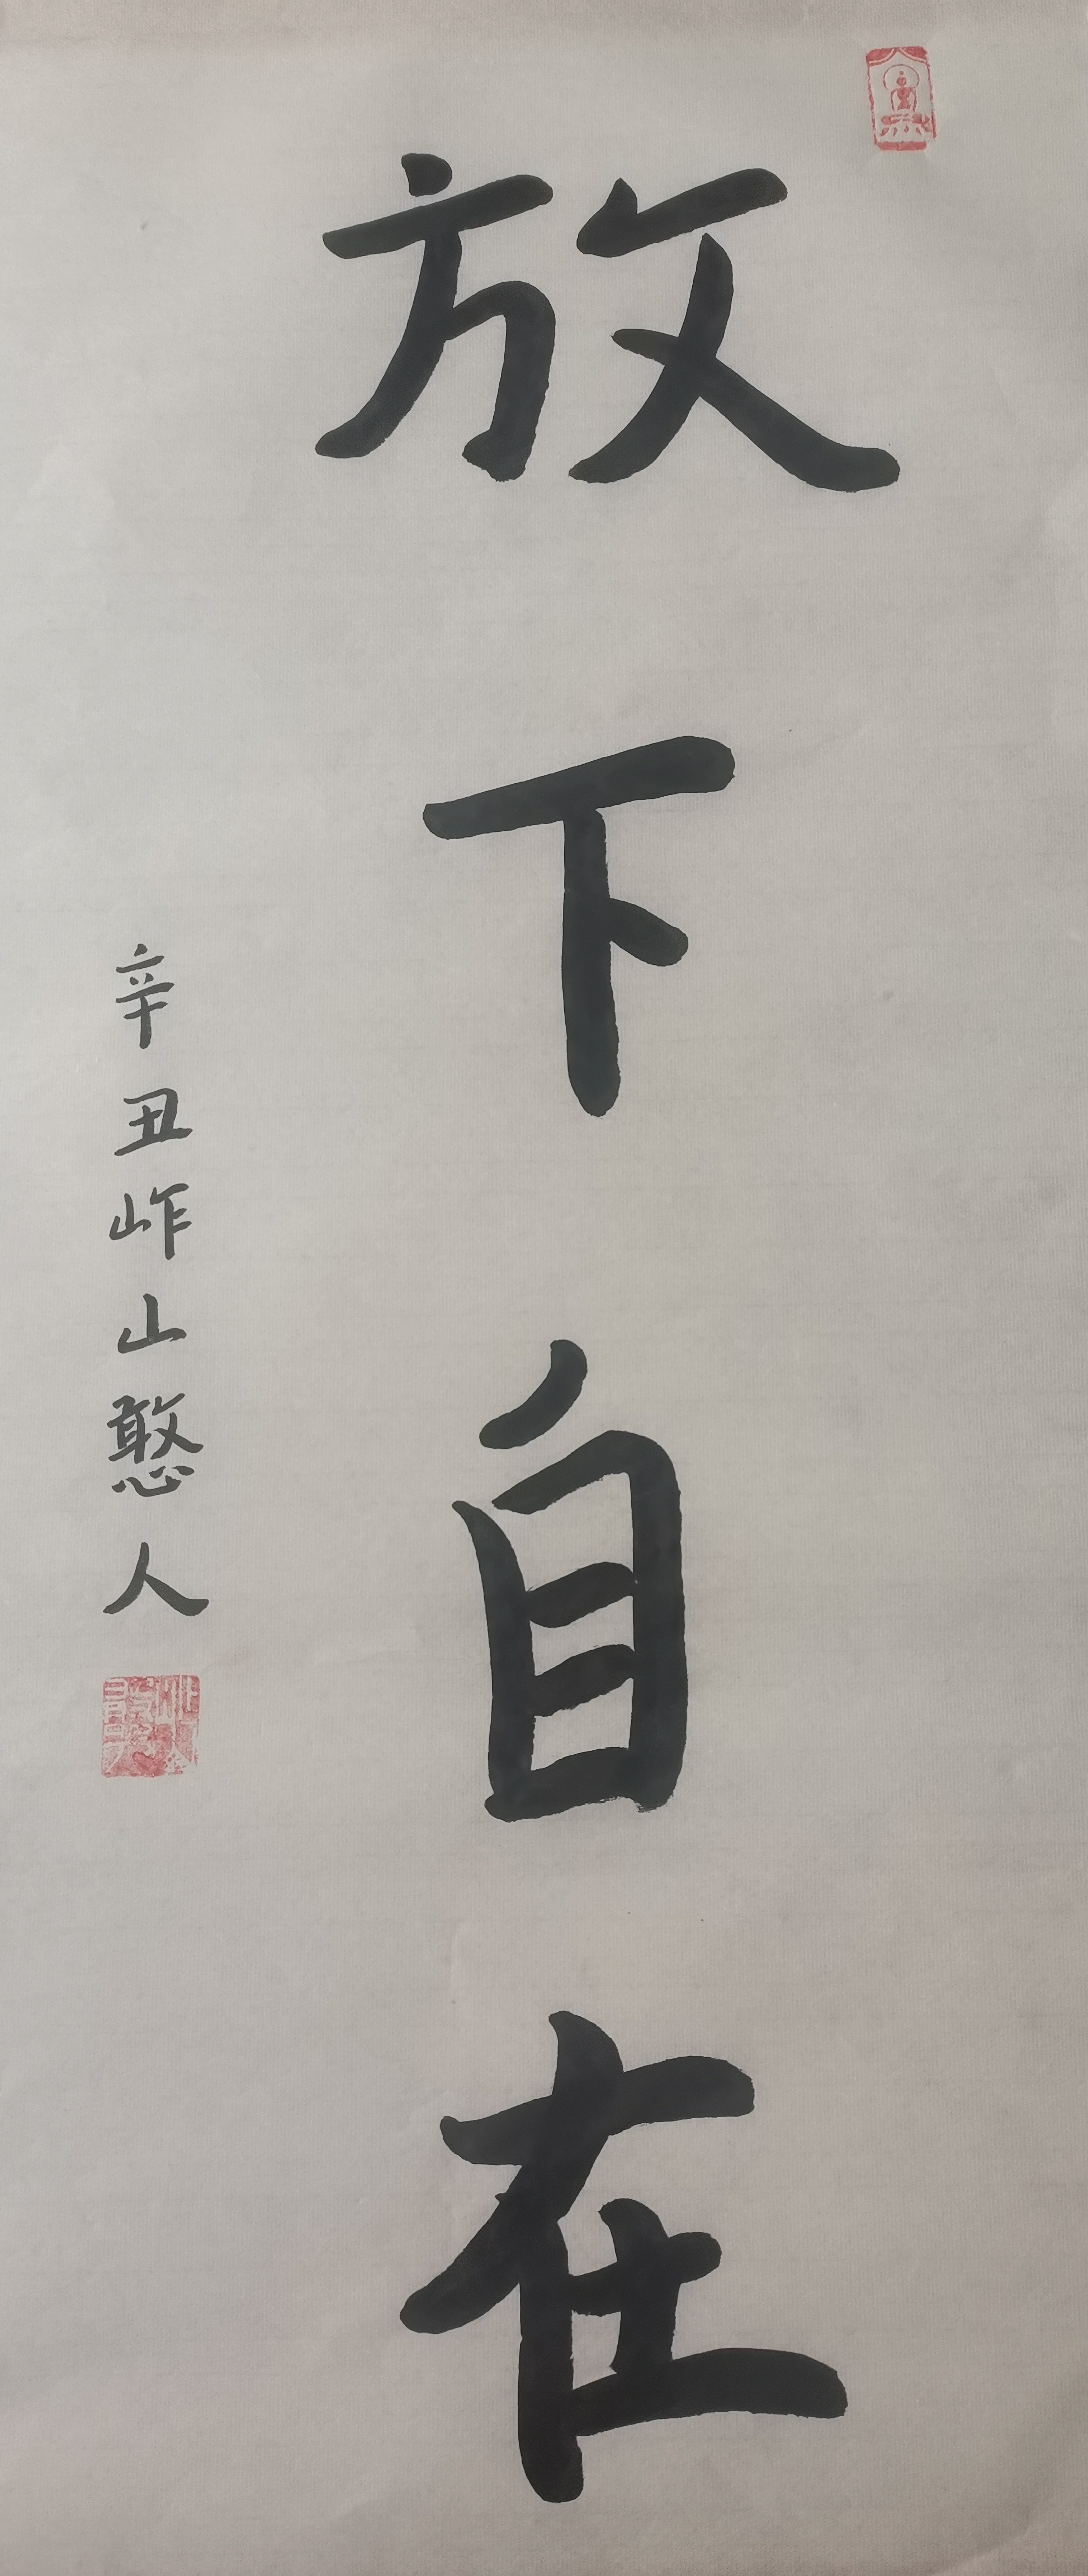 放下自在
辛丑岞山憨人